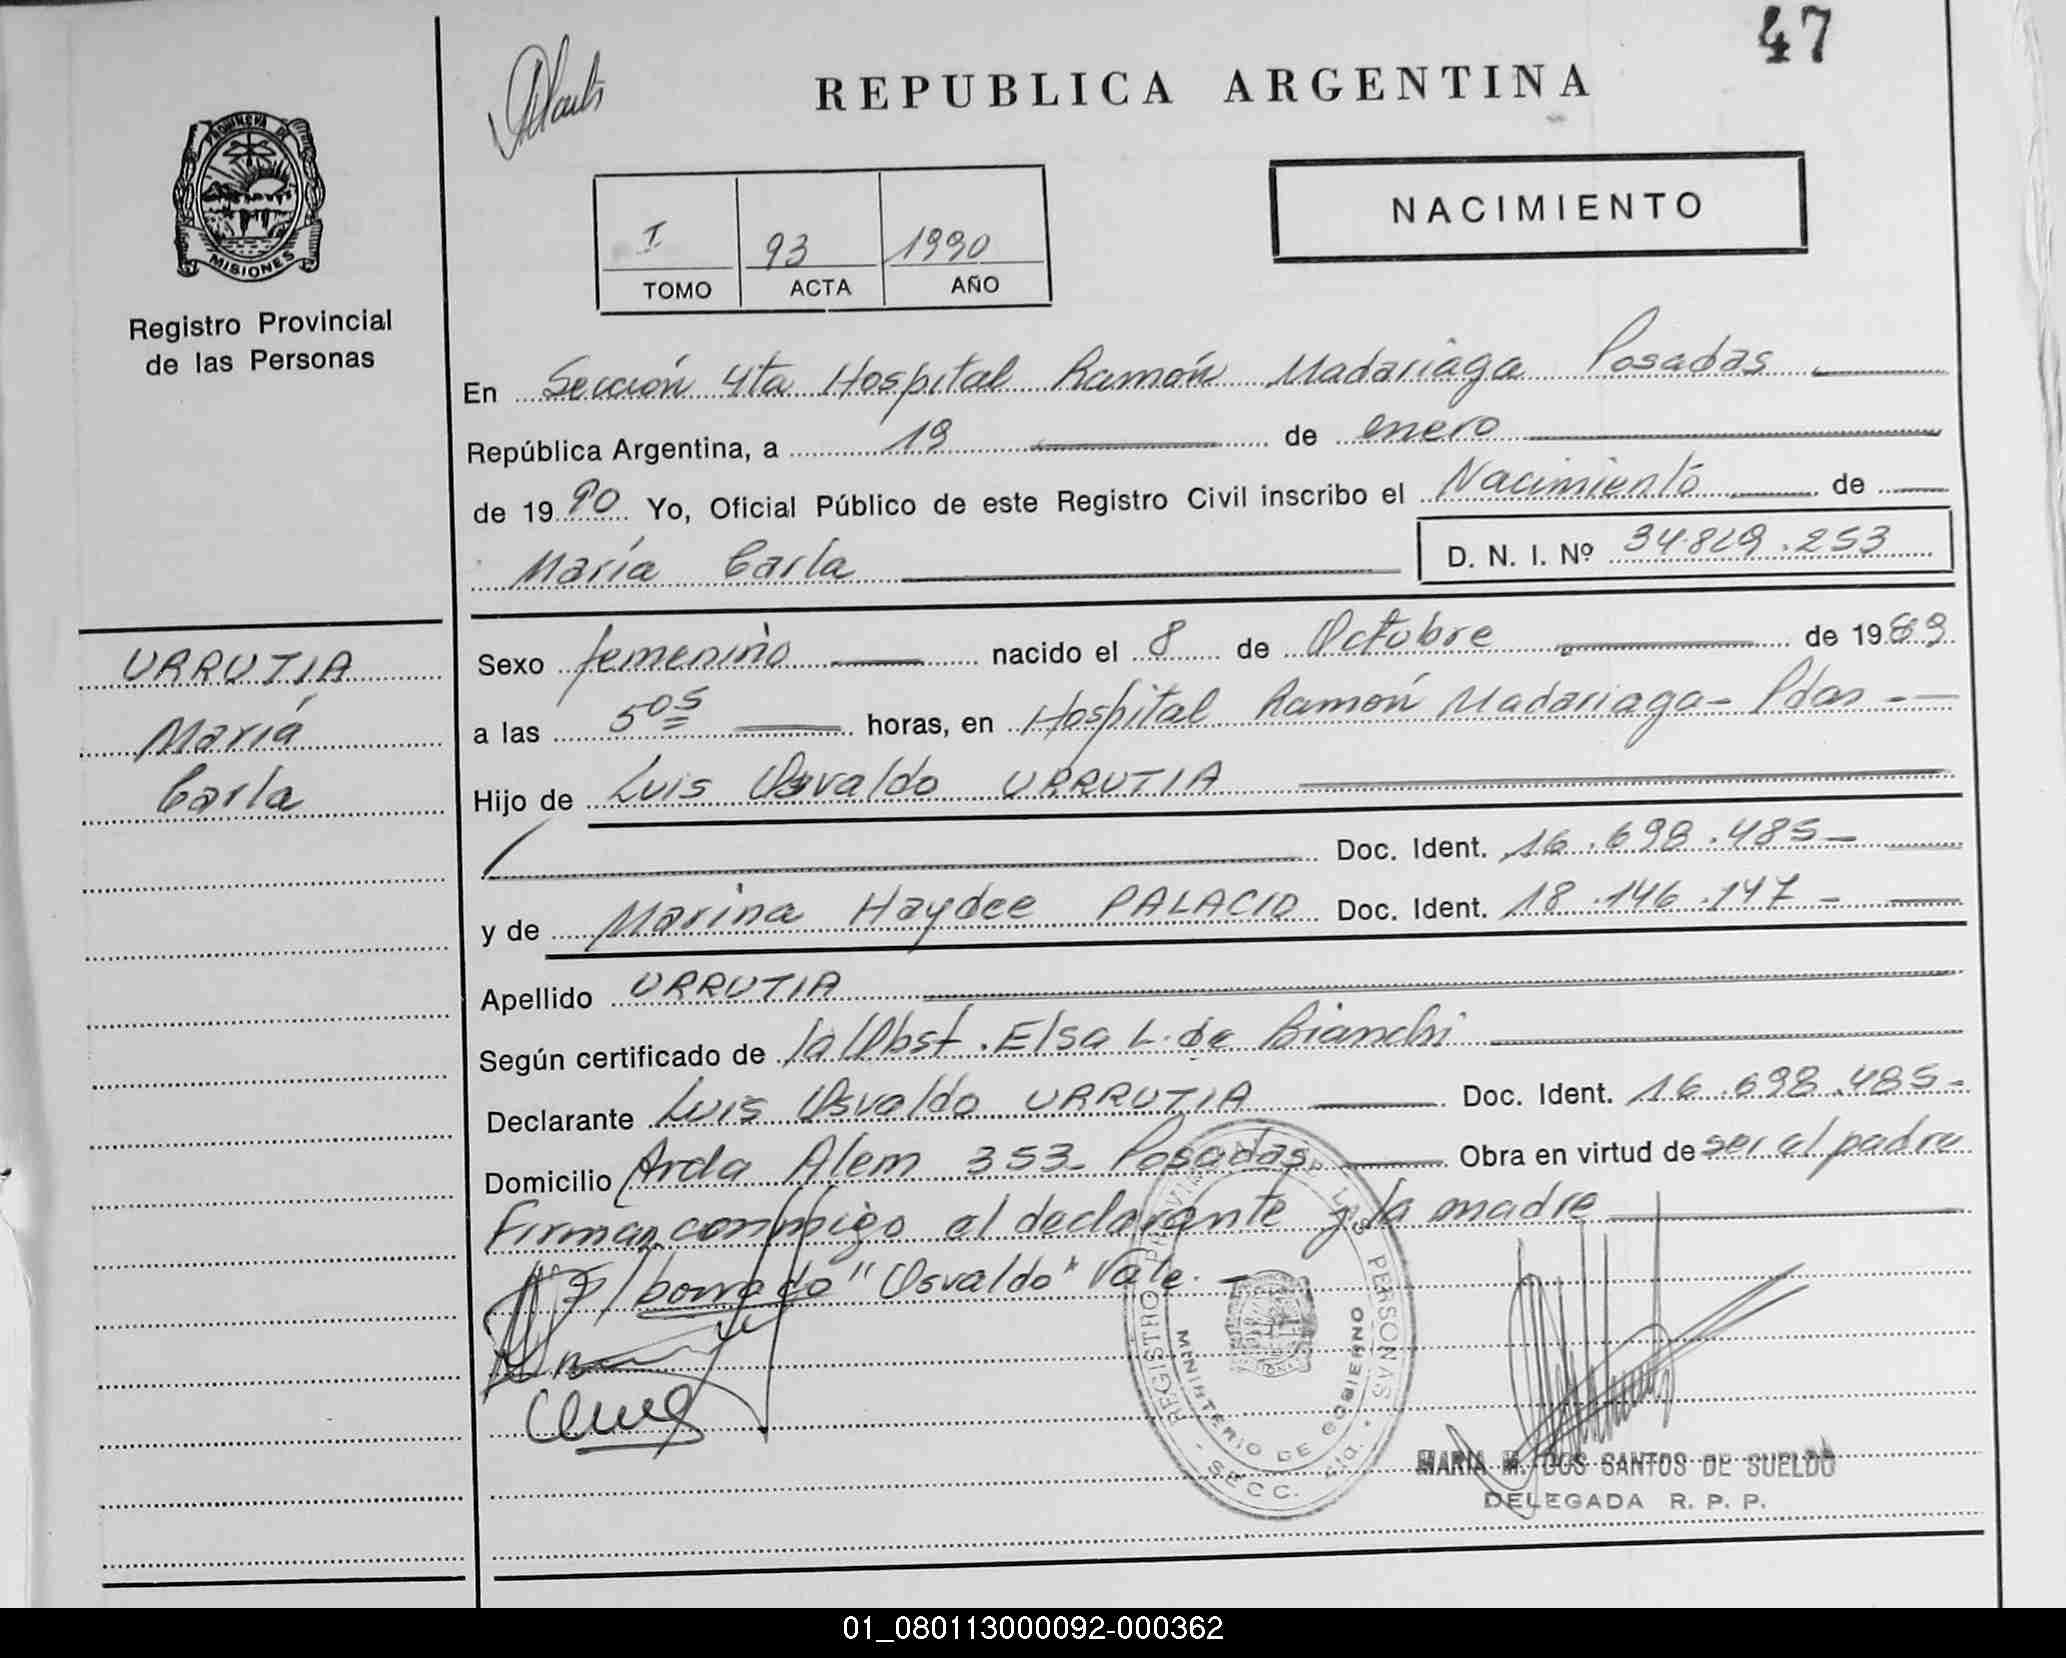 47
REPUBLICA ARGENTINA
NACIMIENTO
I 93 1990
TOMO ACTA AÑO
PROVINCIA DE
MISIONES
Registro Provincial
de las Personas
En Sección 4ta Hospital Ramón Madariaga Posadas
República Argentina, a 19 de enero
de 1990 Yo, Oficial Público de este Registro Civil inscribo el Nacimiento de
María Carla D. N. I. Nº 34.829.253
URRUTIA
María
Carla
Sexo femenino nacido el 8 de Octubre de 1989
a las 5 05 horas, en Hospital Ramón Madariaga - Pdas -
Hijo de Luis Osvaldo URRUTIA
Doc. Ident. 16.698.485-
y de Marina Haydee PALACIO Doc. Ident. 18.146.147-
Apellido URRUTIA
Según certificado de la Obst. Elsa L. de Bianchi
Declarante Luis Osvaldo URRUTIA Doc. Ident. 16.698.485-
Domicilio Avda Alem 353- Posadas Obra en virtud de ser el padre
Firman conmigo el declarante y la madre
/borrado "Osvaldo" Vale.-
REGISTRO PROVINCIAL DE LAS PERSONAS
MINISTERIO DE GOBIERNO
SECC. 4ta.
MARIA M. DOS SANTOS DE SUELDO
DELEGADA R. P. P.
01_080113000092-000362